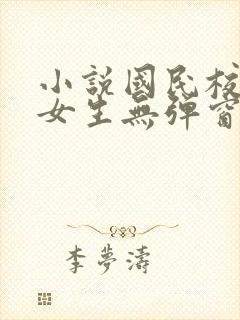 小說國民校
女生無彈窗
李夢濤